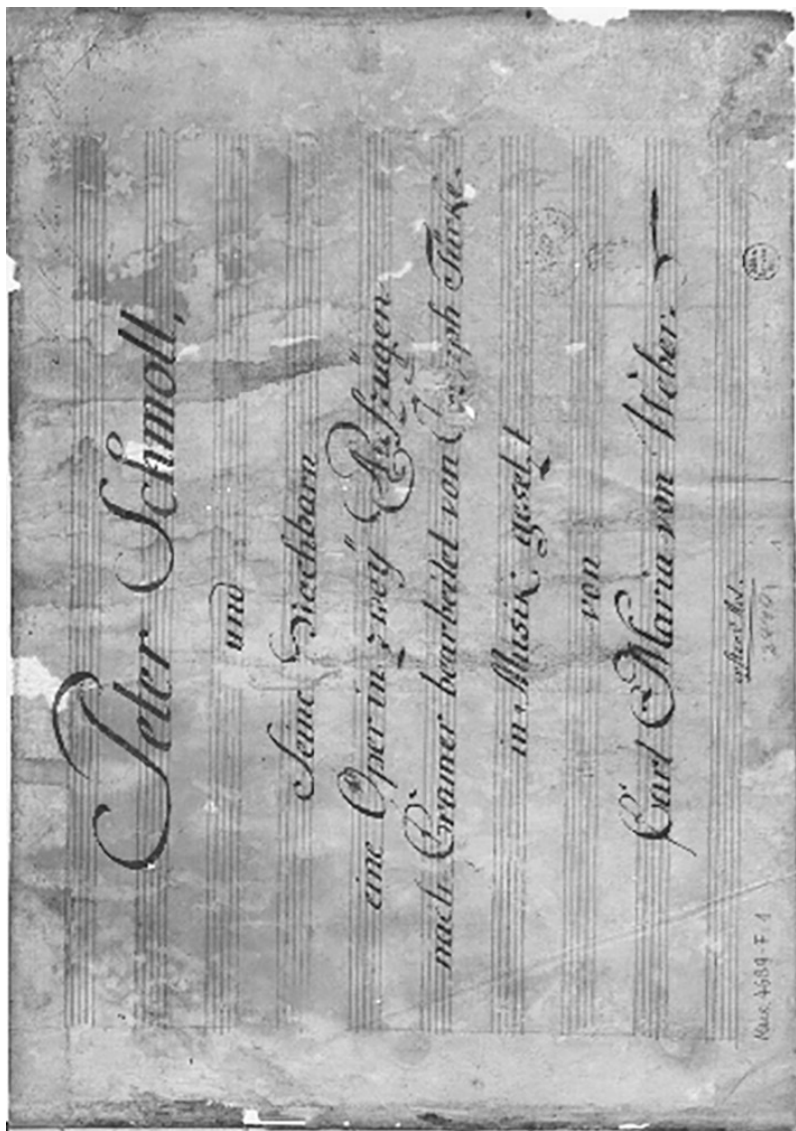 Peter Schmoll,
und
Seine Nachbarn
eine Oper in zweÿ Aufzügen
nach Cramer bearbeitet von Joseph Türke.
in Musik gesetzt
von
Carl Maria von Weber.
Mus. 4689-F 1